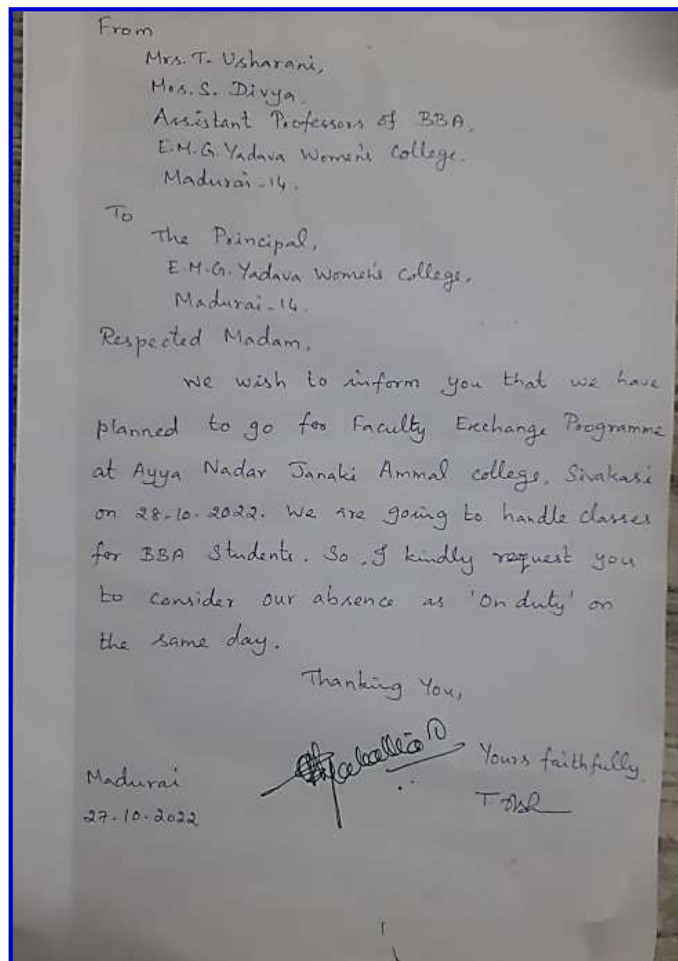 From
Mrs. T. Usharani,
Mrs. S. Divya,
Assistant Professors of BBA,
E.M.G. Yadava Women's College.
Madurai-14.
To
The Principal,
E.M.G. Yadava Women's College,
Madurai-14.
Respected Madam,
We wish to inform you that we have
planned to go for Faculty Exchange Programme
at Ayya Nadar Janaki Ammal college, Sivakasi
on 28-10-2022. We are going to handle classes
for BBA Students. So, I kindly request you
to consider our absence as 'On duty' on
the same day.
Thanking You,
Yours faithfully,
Madurai
27-10-2022